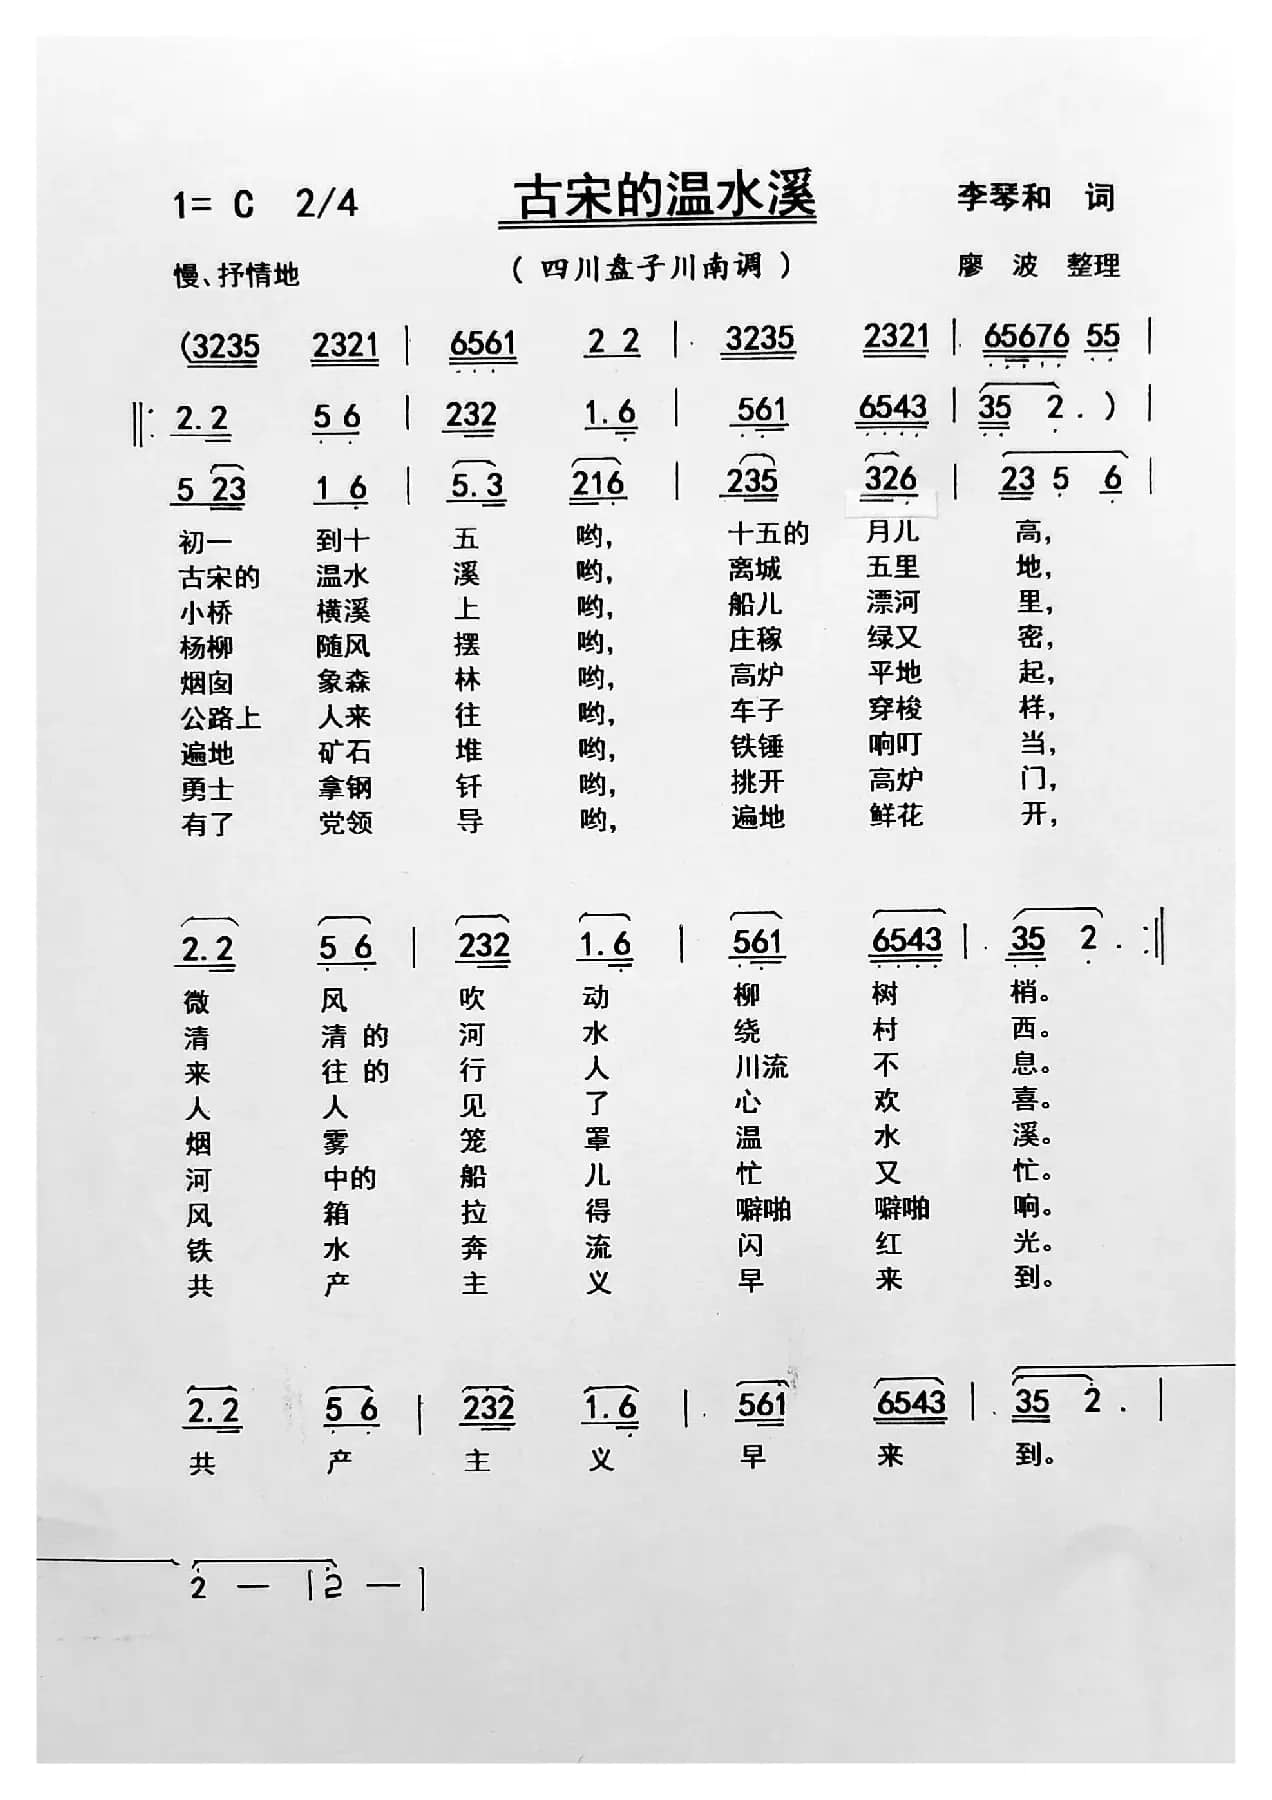 1= C 2/4 古宋的温水溪 李琴和 词
慢、抒情地 (四川盘子川南调) 廖 波 整理
(3235 2321 | 6561 2 2 | 3235 2321 | 65676 55 |
‖: 2.2 5 6 | 232 1.6 | 561 6543 | 35 2 . ) |
5 23 1 6 | 5.3 216 | 235 326 | 23 5 6 |
初一 到十 五 哟, 十五的 月儿 高,
古宋的 温水 溪 哟, 离城 五里 地,
小桥 横溪 上 哟, 船儿 漂河 里,
杨柳 随风 摆 哟, 庄稼 绿又 密,
烟囱 象森 林 哟, 高炉 平地 起,
公路上 人来 往 哟, 车子 穿梭 样,
遍地 矿石 堆 哟, 铁锤 响叮 当,
勇士 拿钢 钎 哟, 挑开 高炉 门,
有了 党领 导 哟, 遍地 鲜花 开,
2.2 5 6 | 232 1.6 | 561 6543 | 35 2 . :‖
微 风 吹 动 柳 树 梢。
清 清 的 河 水 绕 村 西。
来 往 的 行 人 川流 不 息。
人 人 见 了 心 欢 喜。
烟 雾 笼 罩 温 水 溪。
河 中的 船 儿 忙 又 忙。
风 箱 拉 得 噼啪 噼啪 响。
铁 水 奔 流 闪 红 光。
共 产 主 义 早 来 到。
2.2 5 6 | 232 1.6 | 561 6543 | 35 2 . |
共 产 主 义 早 来 到。
2 — | 2 — |